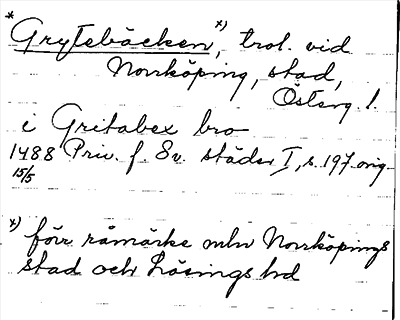 * Grytebäcken x), trol. vid
Norrköping, stad,
Österg. l.
i Gritabex bro
1488 Priv. f. Sv. städer I, s. 197 orig.
15/5
x) förr råmärke mln Norrköpings
stad och Lösings hd